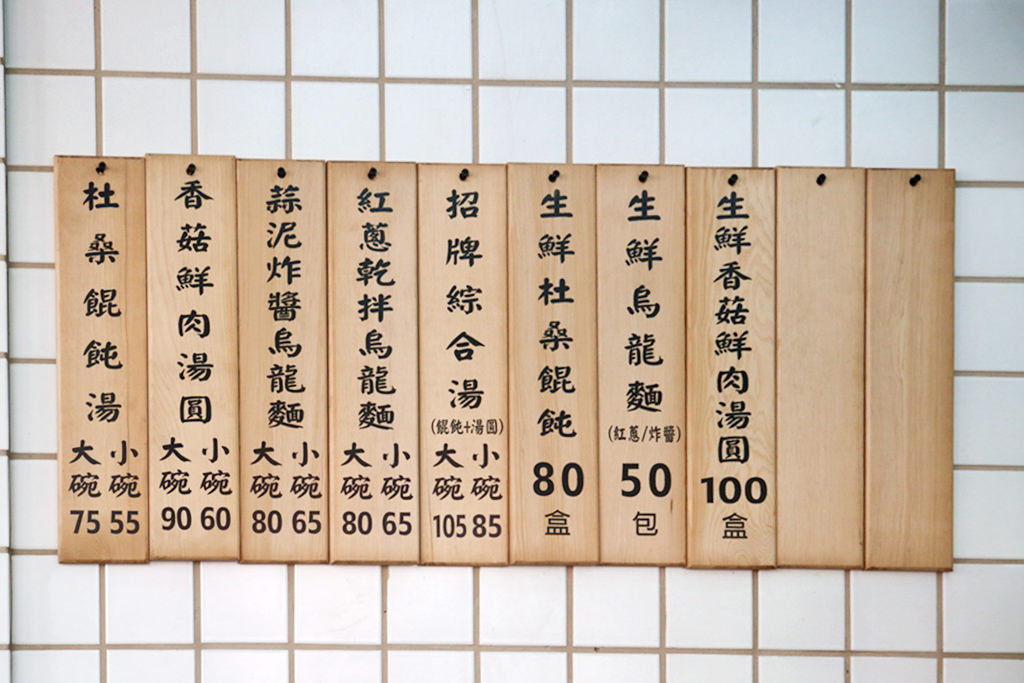 杜桑餛飩湯
大碗 小碗
75 55
香菇鮮肉湯圓
大碗 小碗
90 60
蒜泥炸醬烏龍麵
大碗 小碗
80 65
紅蔥乾拌烏龍麵
大碗 小碗
80 65
招牌綜合湯
(餛飩+湯圓)
大碗 小碗
105 85
生鮮杜桑餛飩
80
盒
生鮮烏龍麵
(紅蔥/炸醬)
50
包
生鮮香菇鮮肉湯圓
100
盒